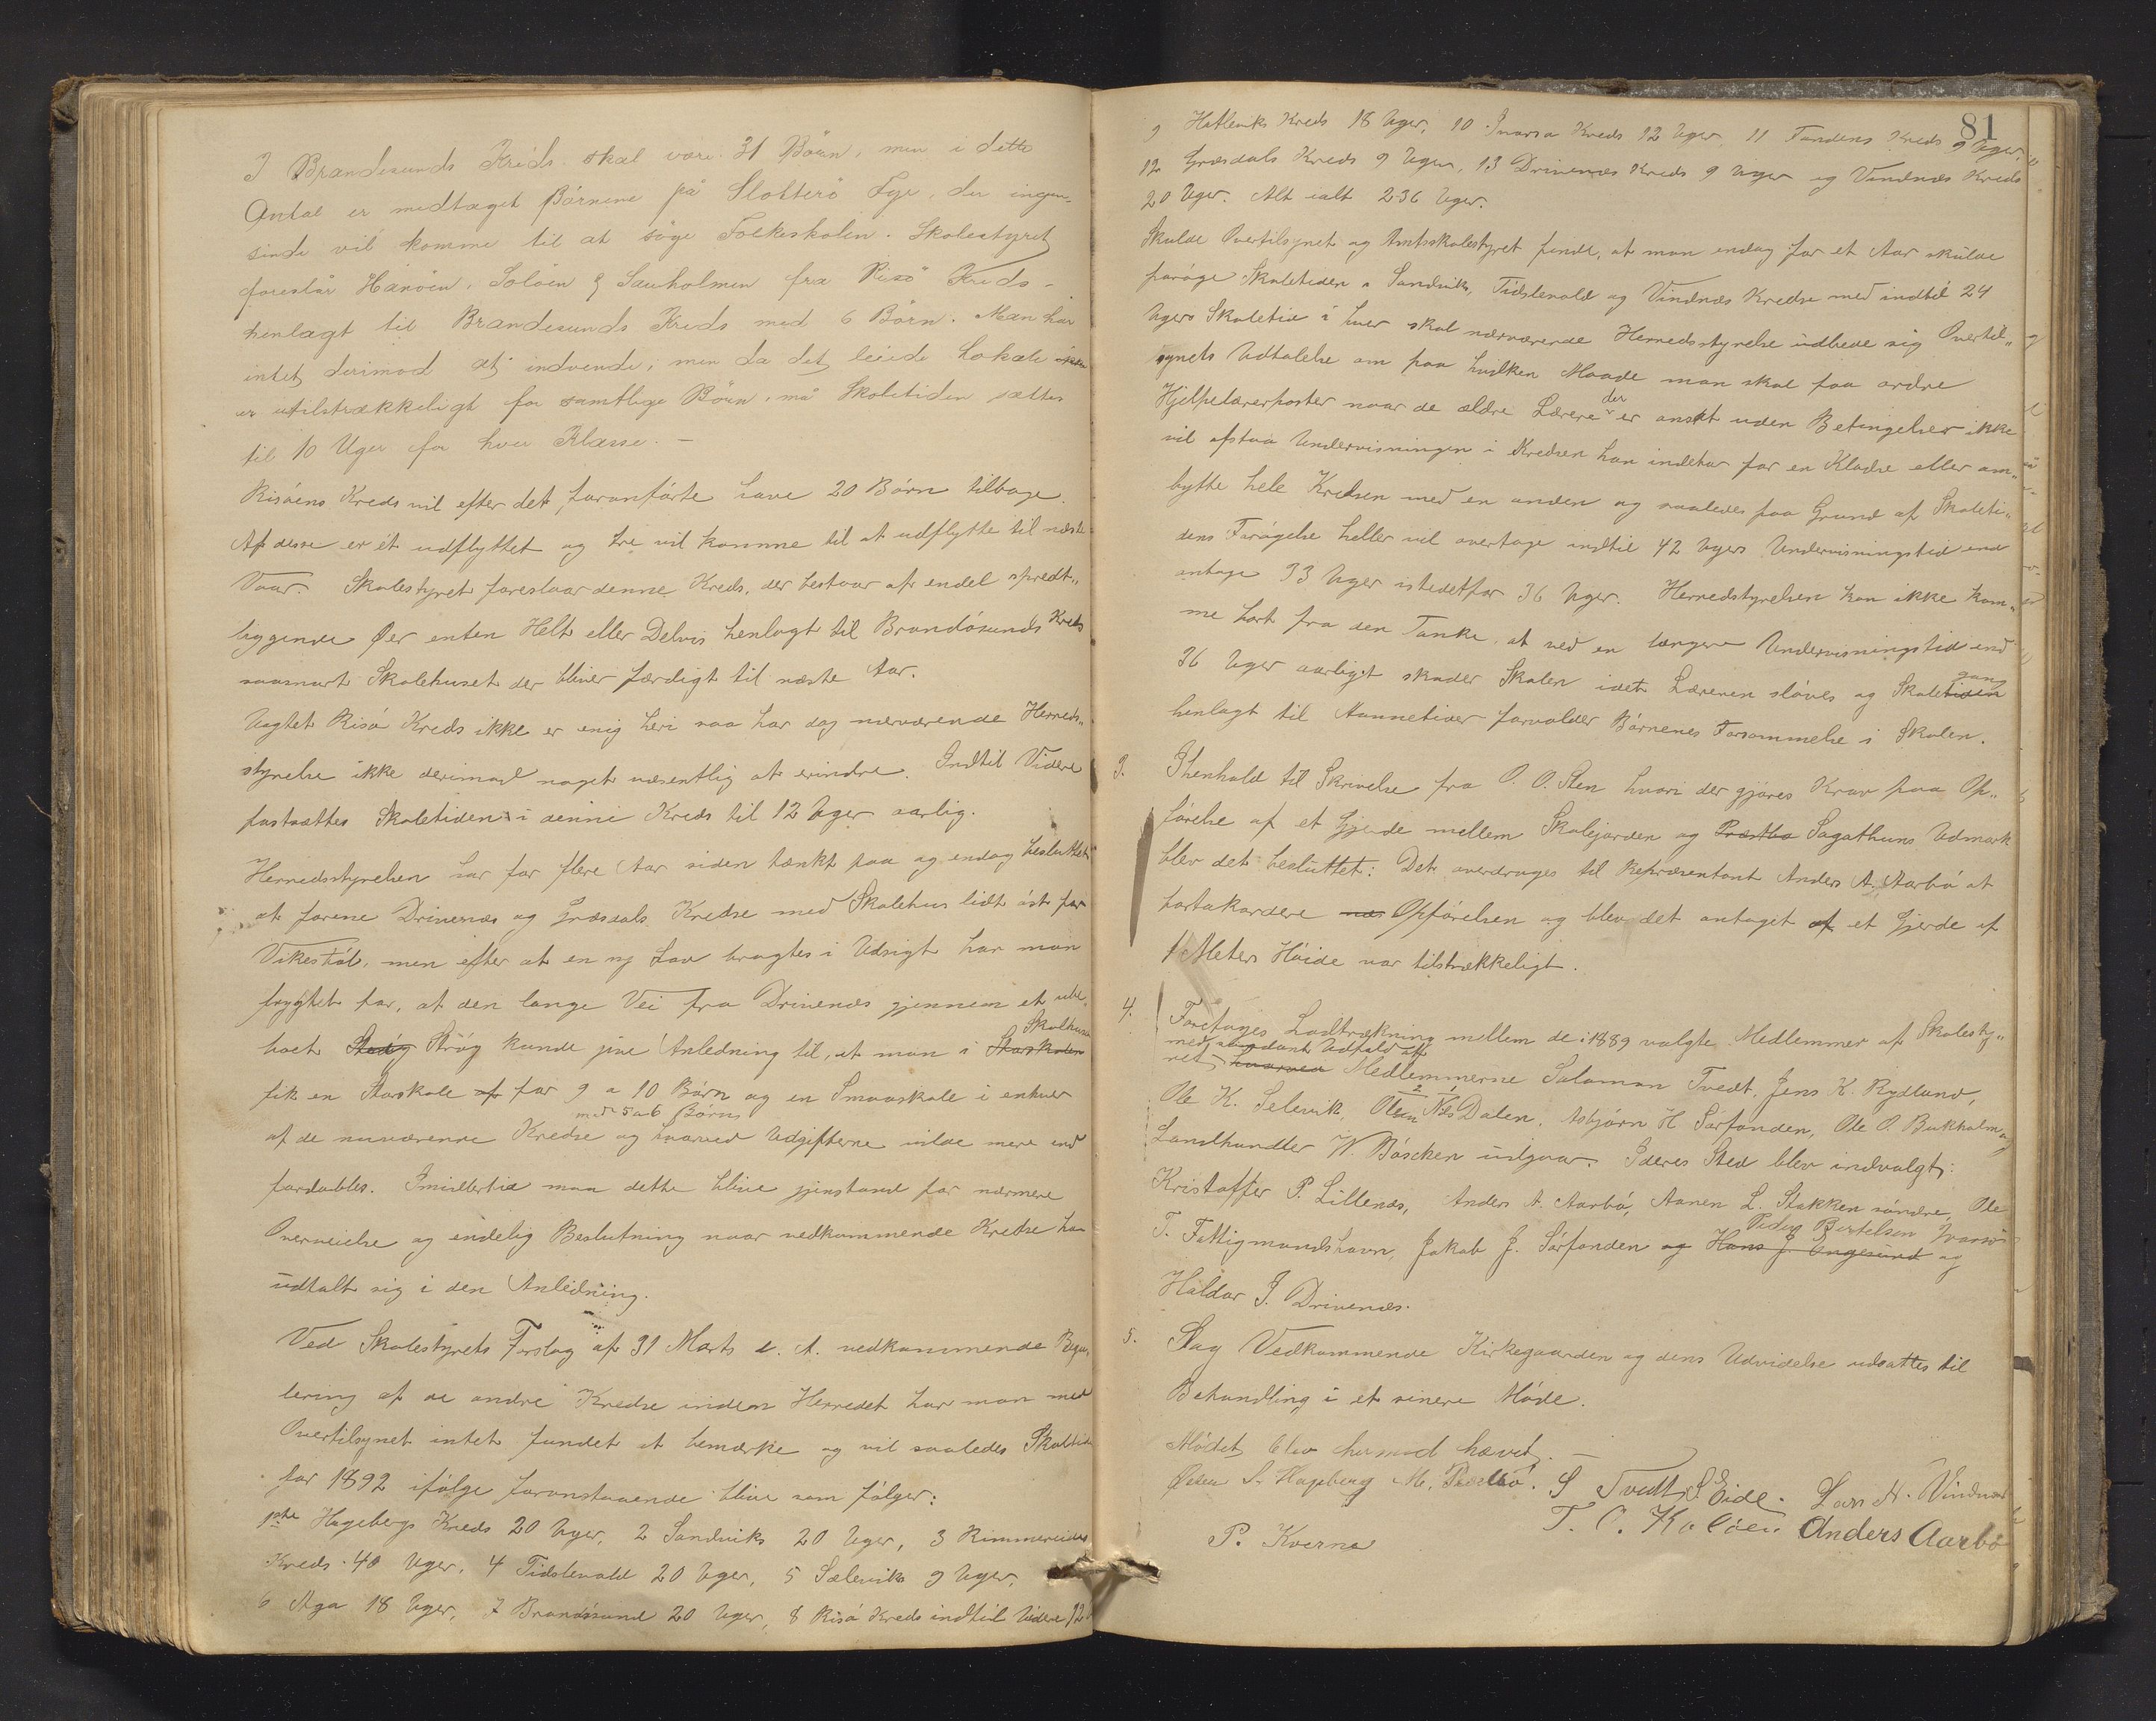 I Brandesunds Kreds skal være 31 Börn, men i dette
Antal er medtaget Börnene på Slotterö Fyr, der ingen-
sinde vil komme til at söge Folkeskolen. Skolestyret
foreslår Hanöen, Solöen & Sauholmen fra Risö Kreds
henlagt til Brandesunds Kreds med 6 Börn. Man har
intet derimod at indvende, men da det leiede Lokale
er utilstrækkeligt for samtlige Börn, må Skoletiden sættes
til 10 Uger for hver Klasse. –
Risöens Kreds vil efter det foranförte have 20 Börn tilbage.
Af disse er ét udflyttet og tre vil komme til at udflytte til næste
Vaar. Skolestyret foreslaar denne Kreds, der bestaar af endel spredt„
liggende Øer enten Helt eller Delvis henlagt til Brandösunds Kreds
saasnart Skolehuset der bliver færdigt til næste Aar.
Uagtet Risö Kreds ikke er enig heri saa har dog nærværende Herreds„
styrelse ikke derimod noget væsentlig at erindre. Indtil Videre
fastsættes Skoletiden i denne Kreds til 12 Uger aarlig.
Herredsstyrelsen har for flere Aar siden tænkt paa og endog besluttet
at forene Drivenes og Græsdals Kredse med Skolehus lidt öst for
Vikestöl, men efter at en ny Lov bragtes i Udsigt har man
frygtet for, at den lange Vei fra Drivenæs gjennem et ube„
boet Strög Strög kunde give Anledning til, at man i Storskolen Skolehuset
fik en Storskole af for 9 a 10 Börn og en Smaaskole i enhver
af de nuværende Kredse med 5 a 6 Börn og hvorved Udgifterne vilde mere end
fordobles. Imidlertid maa dette blive gjenstand for nærmere
Overveielse og endelig Beslutning naar vedkommende Kredse har
udtalt sig i den Anledning.
Ved Skolestyrets Forslag af 31 Marts d. A. vedkommende Regu„
lering af de andre Kredse inden Herredet har man med
Overtilsynet intet fundet at bemærke og vil saaledes Skoletiden
for 1892 ifölge foranstaaende blive som fölger:
1ste Hagebergs Kreds 20 Uger, 2 Sandviks 20 Uger, 3 Rimmereides
Kreds 40 Uger, 4 Tidslevold 20 Uger, 5 Sæleviks 9 Uger,
6 Aga 18 Uger, 7 Brandösund 20 Uger, 8 Risö Kreds indtil Videre 12
81
9 Hatleviks Kreds 18 Uger, 10 Ivarsø Kreds 12 Uger 11 Fondens Kreds 9 Uger,
12 Græsdals Kreds 9 Uger, 13 Drivenæs Kreds 9 Uger og Vindnæs Kreds
20 Uger. Alt ialt 236 Uger.
Skulde Overtilsynet og Amtsskolestyret finde, at man endog for et Aar skulde
foröge Skoletiden i Sandvik, Tidslevold og Vindnæs Kredse med indtil 24
Ugers Skoletid i hver skal nærværende Herredsstyrelse udbede sig Overtil„
synets Udtalelse om paa hvilken Maade man skal faa ordre
Hjelpelærerposter naar de ældre Lærere der er ansat uden Betingelser ikke
vil afstaa Undervisningen i Kredsen han indehar for en Kladse eller om„
bytte hele Kredsen med en anden og saaledes paa Grund af Skoleti„
dens Forögelse heller vil overtage indtil 42 Ugers Undervisningstid end
antage 33 Uger istedetfor 36 Uger. Herredstyrelsen kan ikke kom„
me bort fra den Tanke, at ved en længere Undervisningstid end
36 Uger aarligt skader Skolen idet Læreren slöves og Skoletiden gang
henlagt til Aannetider forvolder Börnenes Forsømmelse i Skolen.
3. Ihenhold til Skrivelse fra O. O. Sten hvori der gjøres Krav paa Op„
förelse af et Gjerde mellem Skolejorden og Præstbo Sagathuns Udmark
blev det besluttet: Det overdrages til Repræsentant Anders A. Aarbö at
bortakordere Opförelsen og blev det antaget at et Gjerde af
1 Meters Höide var tilstrækkeligt.
4. Foretages Lodtrækning mellem de i 1889 valgte Medlemmer af Skolesty„
ret hvorved med saadant Udfald at Medlemmerne Salamon Tvedt, Jens K. Rydland,
Ole K. Selevik, Nils Dalen, Asbjörn H Sörfonden, Ole O. Bukholm og
Landhandler W. Böschen udgaar. I deres Sted blev indvalgt:
Kristoffer P. Lillenæs, Anders A. Aarbö, Aanen L. Stokken söndre, Ole
T. Fattigmandshavn, Jakob J. Sörfonden og Hans J. Engesund Peder Bertelsen Ivarsö og
Haldor J. Drivenæs.
5. Sag Vedkommende Kirkegaarden og dens Udvidelse udsattes til
Behandling i et sinere Möde.
Mödet blev hermed hævet. –
Østen S. Hageberg M. Præstbö. S Tvedt S Eide. Lars H. Vindnæs
P. Kverna T. O. Kalöen Anders Aarbö